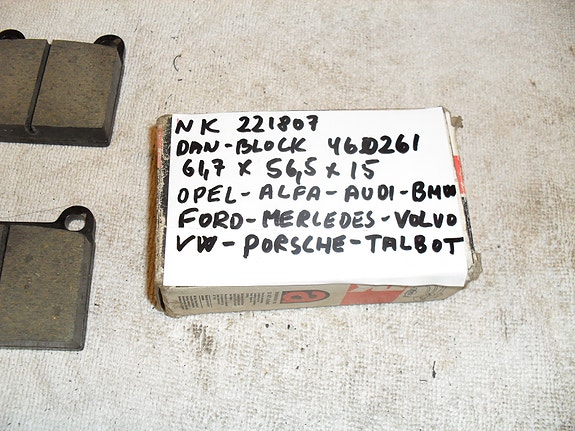 NK 221807
DAN-BLOCK 460261
61,7 x 56,5 x 15
OPEL-ALFA-AUDI-BMW
FORD-MERLEDES-VOLVO
VW-PORSCHE-TALBOT